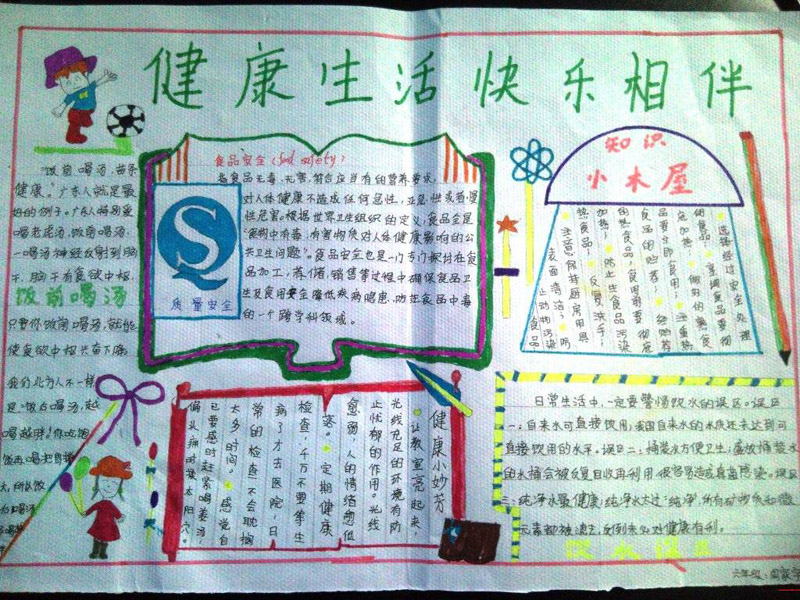 健康生活快乐相伴
"饭前喝汤,苗条
健康。"广东人就是最
好的例子。广东人特别爱
喝老火汤,饭前喝汤,
一喝汤神经反射到胸
饭前喝汤
只要你饭前喝汤,就能
使食欲中枢兴奋下降。
我们北方人不一样
是"饭后喝汤,越
喝越胖"。你吃饱
食品安全(food safety)
指食品无毒、无害,符合应当有的营养要求,
对人体健康不造成任何急性、亚急性或者慢
性危害。根据世界卫生组织的定义,食品安全是
"食物中有毒、有害物质对人体健康影响的公
共卫生问题"。食品安全也是一门专门探讨在食
品加工、存储、销售等过程中确保食品卫
生及食用安全,降低疾病隐患,防范食品中毒
的一个跨学科领域。
S
质量安全
知识
小木屋
选择经过安全处理
的食品
食品要彻
底加热
做好的熟食
品要立即食用
食品的贮存
的熟食品,食用前要彻底
加热
防止生食品污染
熟食品
反复洗手
注意保持厨房用具
表面清洁
防
止动物污染食品
健康小妙方
让教室亮起来,
光线充足的环境有防
止忧郁的作用。光线
愈弱,人的情绪愈低
落。
定期健康
检查,千万不要等生
病了才去医院,日
常的检查不会耽搁
太多时间。
感觉自
己要感冒赶紧喝姜汤,
偏头痛时揉太阳穴。
日常生活中,一定要警惕饮水的误区。误区
一:自来水可直接饮用:我国自来水的水质还未达到可
直接饮用的水平。误区二:桶装水方便卫生:盛放桶装水
的水桶会被反复回收再利用,很容易造成病菌感染。误区
三:纯净水最健康:纯净水太过"纯净",所有矿物质和微
元素都被滤去,反倒未必对健康有利。
饮水误区
六年级: